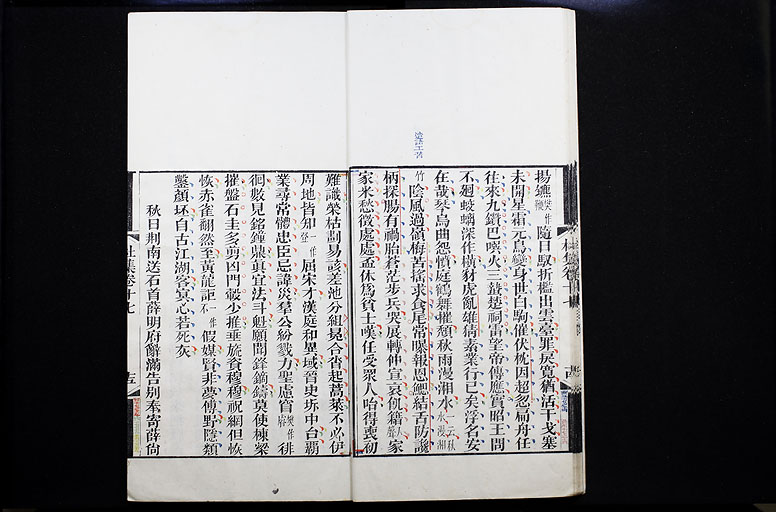 揚鑣樊作鞭隨日馭折檻出雲臺罪戾寬猶活干戈塞
未開星霜元鳥變身世白駒催伏枕因超忽扁舟任
往來九鑽巴噀火三蟄楚祠雷望帝傳應實昭王問
不廻蛟螭深作橫豺虎亂雄猜素業行已矣浮名安
在哉琴烏曲怨憤庭鶴舞摧頽秋雨漫湘水一云秋水漫湘
竹陰風過嶺梅苦搖求食尾常曝報恩鰓結舌防讒
柄探腸有禍胎蒼茫步兵哭展轉仲宣哀飢籍家
家米愁徵處處盃休爲貧士嘆任受衆人咍得喪初
難識榮枯劃易該差池分組冕合沓起蒿萊不必伊
周地皆知一作登屈宋才漢庭和異域晉史坼中台霸
業尋常體忠臣忌諱災羣公紛戮力聖慮窅樊作睿徘
徊數見銘鐘鼎眞宜法斗魁願聞鋒鏑鑄莫使棟梁
摧盤石圭多剪凶門轂少推垂旒資穆穆祝網但恢
恢赤雀翻然至黃龍詎一作不假媒賢非夢傅野隱類
鑿顏坯自古江湖客冥心若死灰
秋日荆南送石首薛明府辭滿告別奉寄薛尙
杜集卷十七